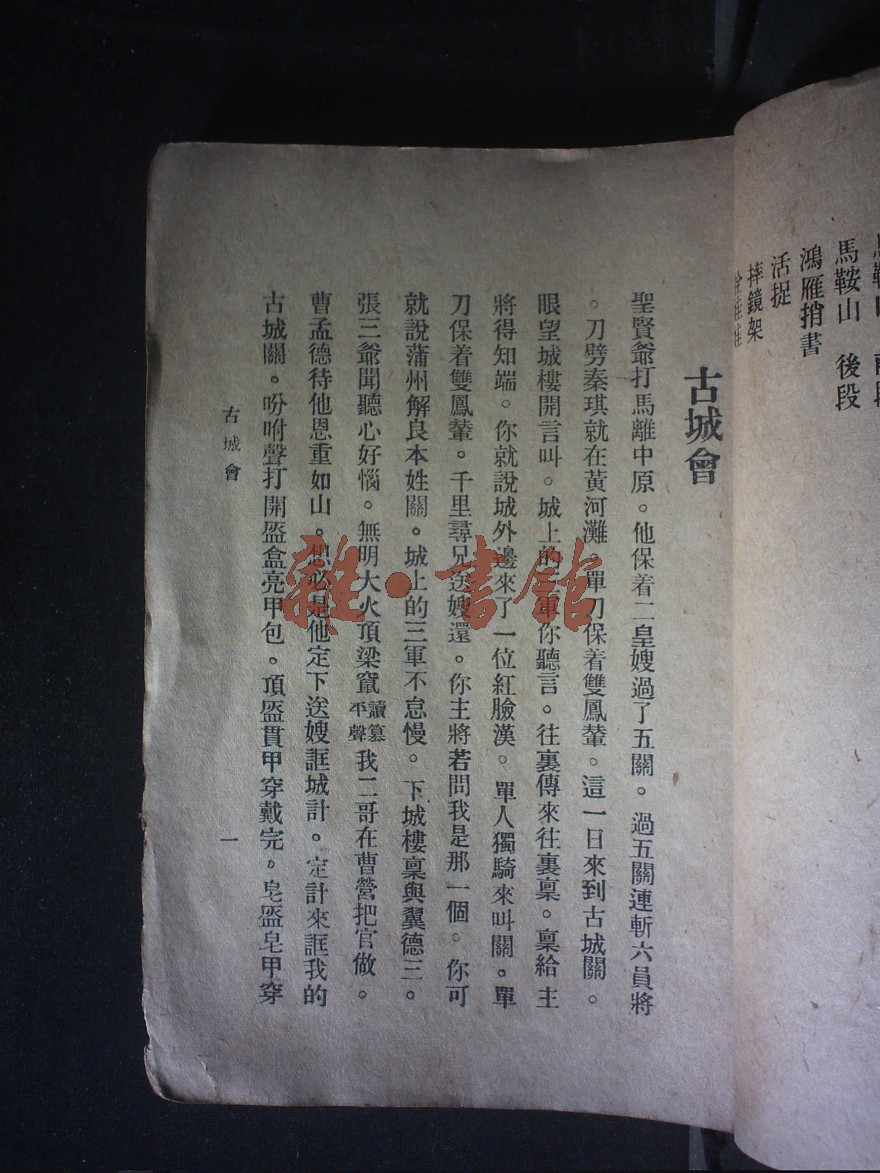 馬鞍山　後段
鴻雁捎書
活捉
摔鏡架
古城會
聖賢爺打馬離中原。他保着二皇嫂過了五關。過五關連斬六員將
。刀劈秦琪就在黃河灘。單刀保着雙鳳輦。這一日來到古城關。
眼望城樓開言叫。城上的三軍你聽言。往裏傳來往裏稟。稟給主
將得知端。你就說城外邊來了一位紅臉漢。單人獨騎來叫關。單
刀保着雙鳳輦。千里尋兄送嫂還。你主將若問我是那一個。你可
就說蒲州解良本姓關。城上的三軍不怠慢。下城樓稟與翼德三。
張三爺聞聽心好惱。無明大火頂梁竄讀篡平聲我二哥在曹營把官做。
曹孟德待他恩重如山。想必是他定下送嫂誆城計。定計來誆我的
古城關。吩咐聲打開盔盒亮甲包。頂盔貫甲穿戴完。皂盔皂甲穿
古城會
一
雜·書館